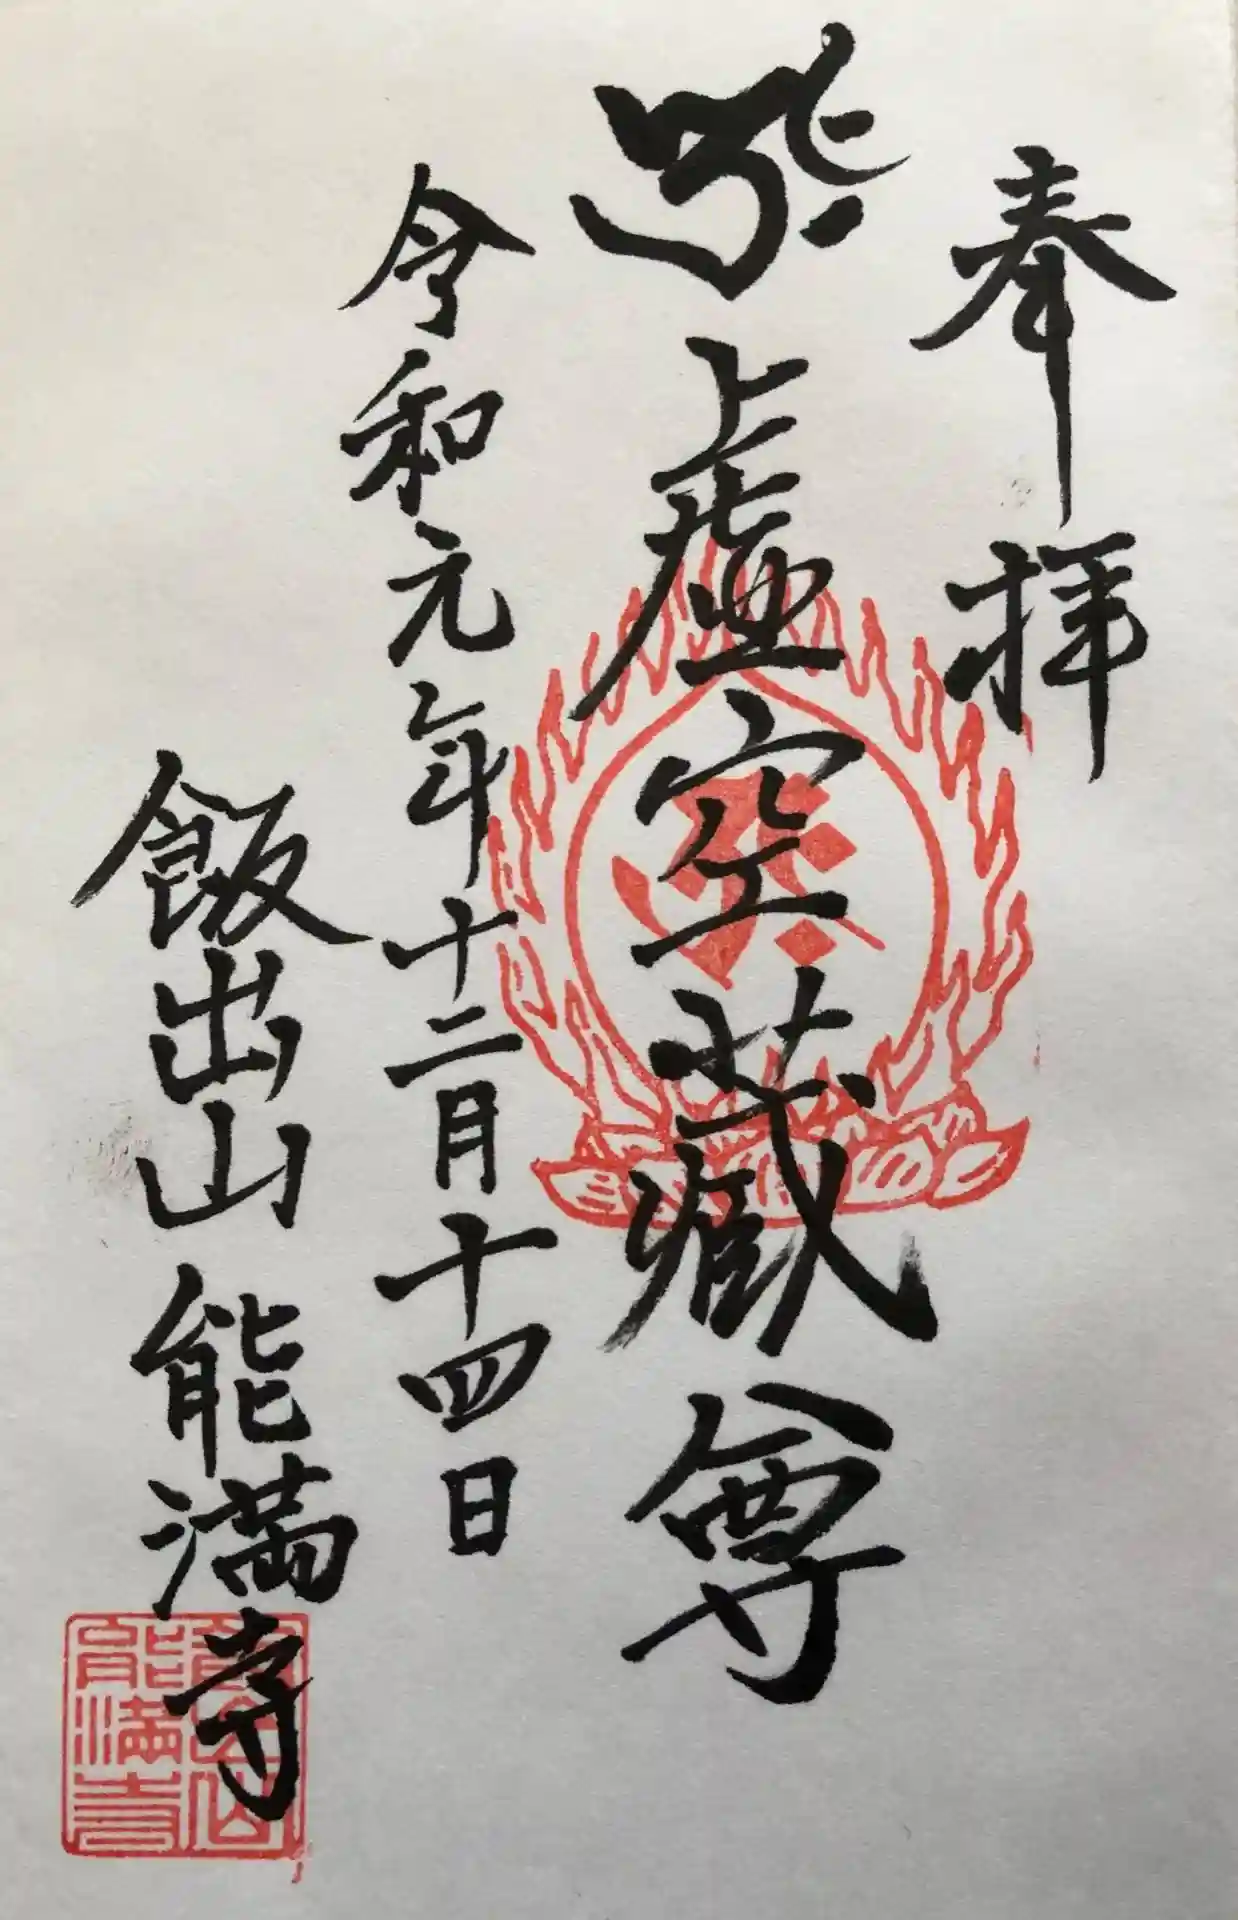 奉拝
虚空藏尊
令和元年十二月十四日
飯出山 能満寺
飯出山
能満寺